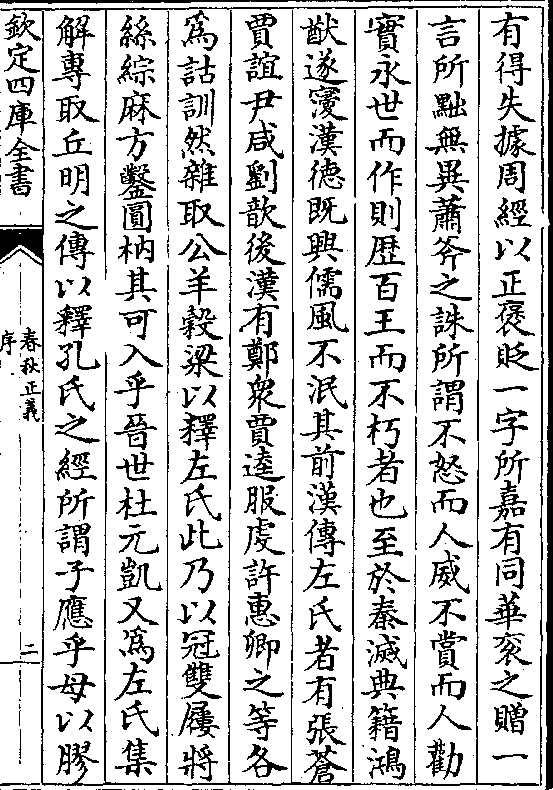 有得失據周經以正褒貶一字所嘉有同華衮之贈一
言所黜無異蕭斧之誅所謂不怒而人威不賞而人勸
實永世而作則歴百王而不朽者也至於秦滅典籍鴻
猷遂寢漢德既興儒風不泯其前漢傳左氏者有張蒼
賈誼尹咸劉歆後漢有鄭衆賈逵服虔許惠卿之等各
爲詁訓然雜取公羊穀梁以釋左氏此乃以冠雙屨將
絲綜麻方鑿圓枘其可入乎晉世杜元凱又爲左氏集
解專取丘明之傳以釋孔氏之經所謂子應乎母以膠
欽定四庫全書
春秋正義
序
二